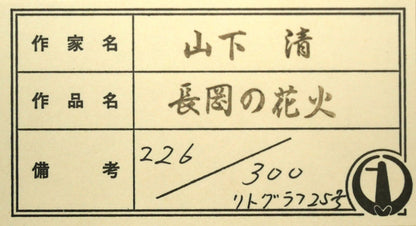 作家名 山下 清
作品名 長岡の花火
備考 226/300
リトグラフ25号